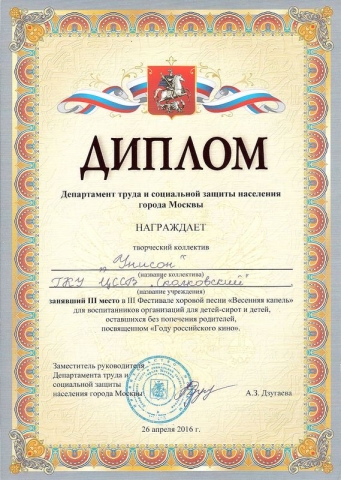 ДИПЛОМ
Департамент труда и социальной защиты населения
города Москвы
НАГРАЖДАЕТ
творческий коллектив
„Унисон"
(название коллектива)
ГКУ ЦССВ „Сколковский"
(название учреждения)
занявший III место в III Фестивале хоровой песни «Весенняя капель»
для воспитанников организаций для детей-сирот и детей,
оставшихся без попечения родителей,
посвященном «Году российского кино».
Заместитель руководителя
Департамента труда и
социальной защиты
населения города Москвы
А.З. Дзугаева
26 апреля 2016 г.